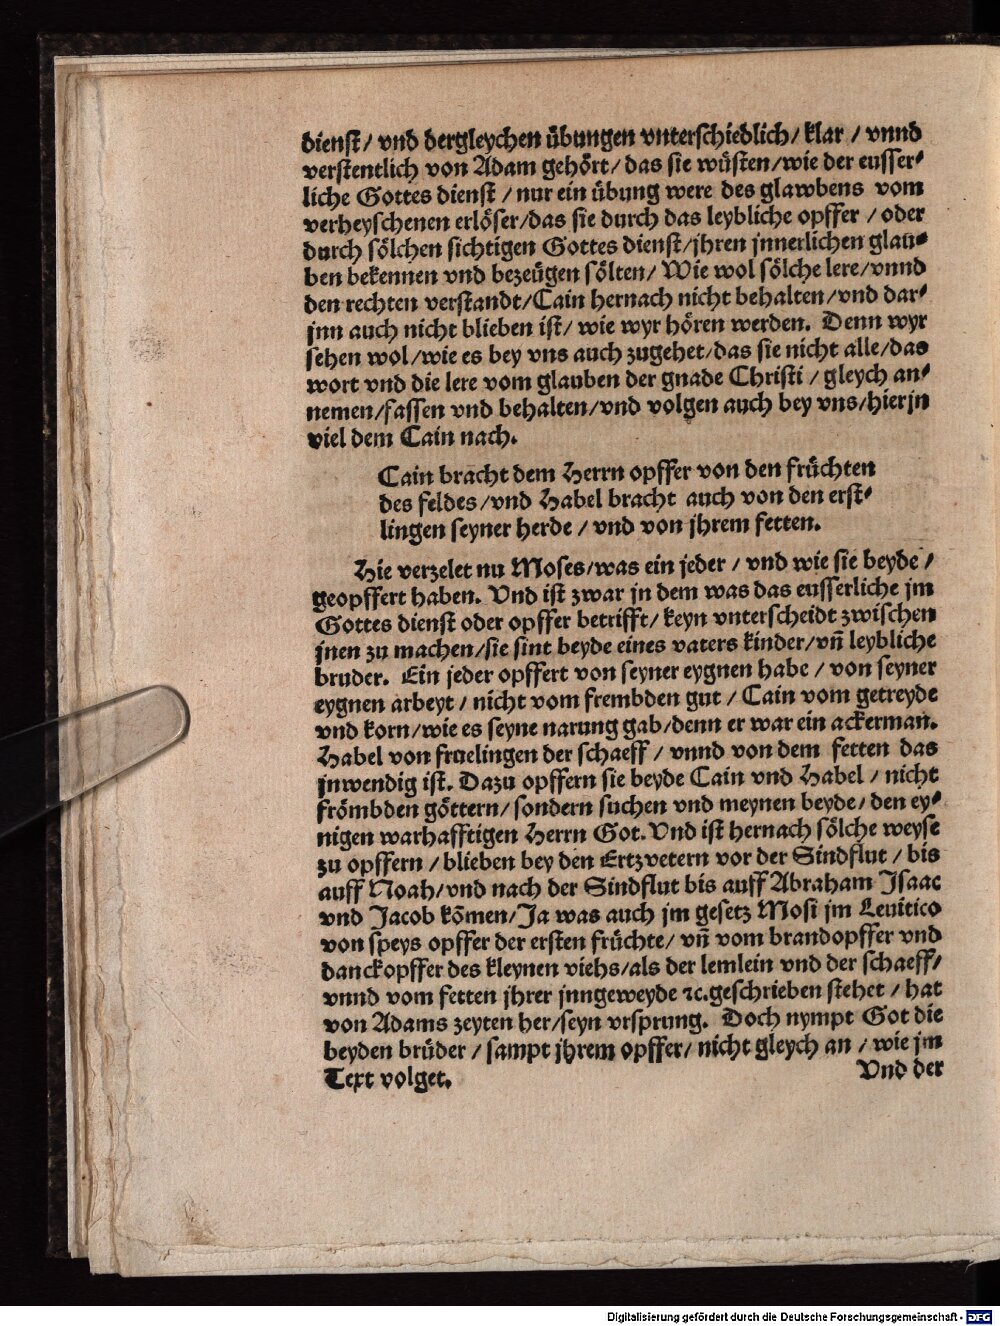 dienst/ vnd dergleychen übungen vnterschiedlich/ klar / vnnd
verstentlich von Adam gehört/ das sie wüsten/wie der eusser⸗
liche Gottes dienst / nur ein übung were des glawbens vom
verheyschenen erlöser/das sie durch das leybliche opffer / oder
durch sölchen sichtigen Gottes dienst/jhren jnnerlichen glau⸗
ben bekennen vnd bezeügen sölten/ Wie wol sölche lere/vnnd
den rechten verstandt/Cain hernach nicht behalten/vnd dar⸗
jnn auch nicht blieben ist/ wie wyr hören werden. Denn wyr
sehen wol/wie es bey vns auch zugehet/das sie nicht alle/das
wort vnd die lere vom glauben der gnade Christi / gleych an⸗
nemen/fassen vnd behalten/vnd volgen auch bey vns/hierjn
viel dem Cain nach.
Cain bracht dem Herrn opffer von den früchten
des feldes/vnd Habel bracht auch von den erst⸗
lingen seyner herde / vnd von jhrem fetten.
Hie verzelet nu Moses/was ein jeder / vnd wie sie beyde /
geopffert haben. Vnd ist zwar jn dem was das eusserliche jm
Gottes dienst oder opffer betrifft/ keyn vnterscheidt zwischen
jnen zu machen/sie sint beyde eines vaters kinder/vñ leybliche
bruder. Ein jeder opffert von seyner eygnen habe / von seyner
eygnen arbeyt / nicht vom frembden gut / Cain vom getreyde
vnd korn/wie es seyne narung gab/denn er war ein ackerman.
Habel von fruelingen der schaeff / vnnd von dem fetten das
jnwendig ist. Dazu opffern sie beyde Cain vnd Habel / nicht
frömbden göttern/ sondern suchen vnd meynen beyde/ den ey⸗
nigen warhafftigen Herrn Got. Vnd ist hernach sölche weyse
zu opffern / blieben bey den Ertzvetern vor der Sindflut / bis
auff Noah/vnd nach der Sindflut bis auff Abraham Isaac
vnd Jacob kõmen/Ja was auch jm gesetz Mosi jm Leuitico
von speys opffer der ersten früchte/ vñ vom brandopffer vnd
danckopffer des kleynen viehs/als der lemlein vnd der schaeff/
vnnd vom fetten jhrer jnngeweyde ꝛc.geschrieben stehet / hat
von Adams zeyten her/seyn vrsprung. Doch nympt Got die
beyden brüder / sampt jhrem opffer/ nicht gleych an / wie jm
Text volget.
Vnd der
Digitalisierung gefördert durch die Deutsche Forschungsgemeinschaft - DFG